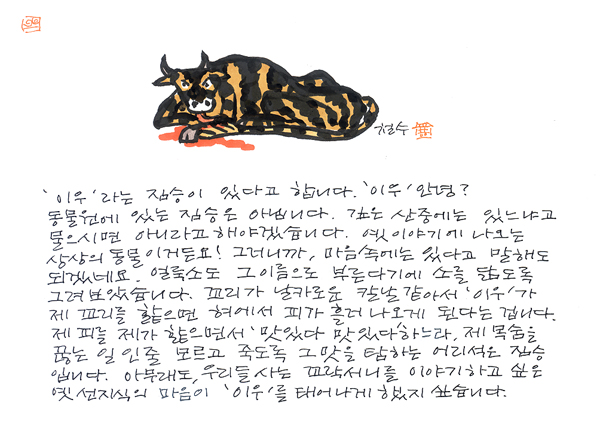 철수
'이우'라는 짐승이 있다고 합니다. '이우' 안녕?
동물원에 있는 짐승은 아닙니다. 깊은 산중에는 있느냐고
물으시면 아니라고 해야겠습니다. 옛이야기에 나오는
상상의 동물이거든요! 그러니까, 마음속에는 있다고 말해도
되겠네요. 얼룩소도 그 이름으로 부른다기에 소를 닮도록
그려보았습니다. 꼬리가 날카로운 칼날 같아서 '이우'가
제 꼬리를 핥으면 혀에서 피가 흘러 나오게 된다는 겁니다.
제 피를 제가 핥으면서 '맛있다 맛있다' 하느라, 제 목숨을
끊는 일인줄 모르고 죽도록 그 맛을 탐하는 어리석은 짐승
입니다. 아무래도, 우리들 사는 꼬락서니를 이야기하고 싶은
옛 선지식의 마음이 '이우'를 태어나게 했지 싶습니다.